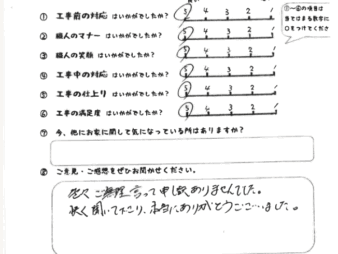 ① 工事前の対応 はいかがでしたか? 5 4 3 2 1
② 職人のマナー はいかがでしたか? 5 4 3 2 1
③ 職人の笑顔 はいかがでしたか? 5 4 3 2 1
④ 工事中の対応 はいかがでしたか? 5 4 3 2 1
⑤ 工事の仕上り はいかがでしたか? 5 4 3 2 1
⑥ 工事の満足度 はいかがでしたか? 5 4 3 2 1
①〜⑥の項目は
当てはまる数字に
○をつけてくださ
⑦ 今、他にお家に関して気になっている所はありますか?
⑧ ご意見・ご感想をぜひお聞かせください。
色々ご無理言って申し訳ありませんでした。
快く聞いて下さり、本当にありがとうございました。